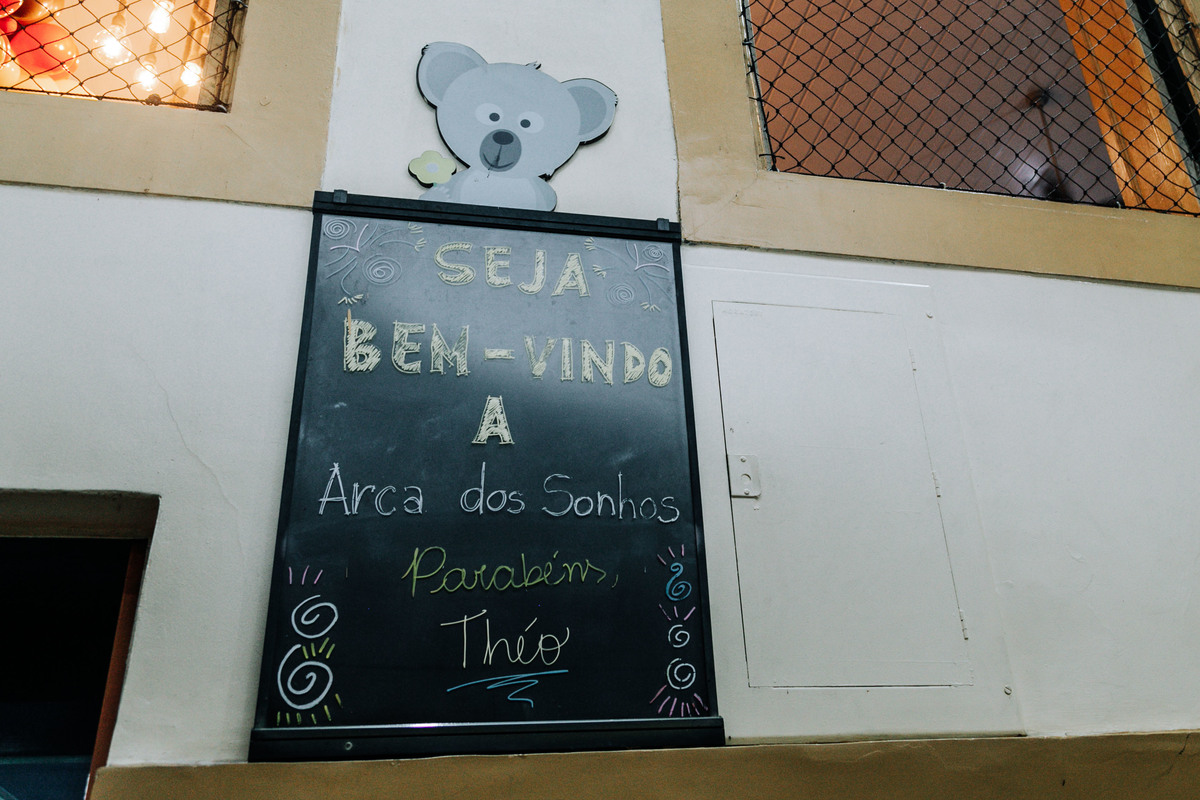 SEJA
BEM-VINDO
A
Arca dos Sonhos
Parabéns,
Théo